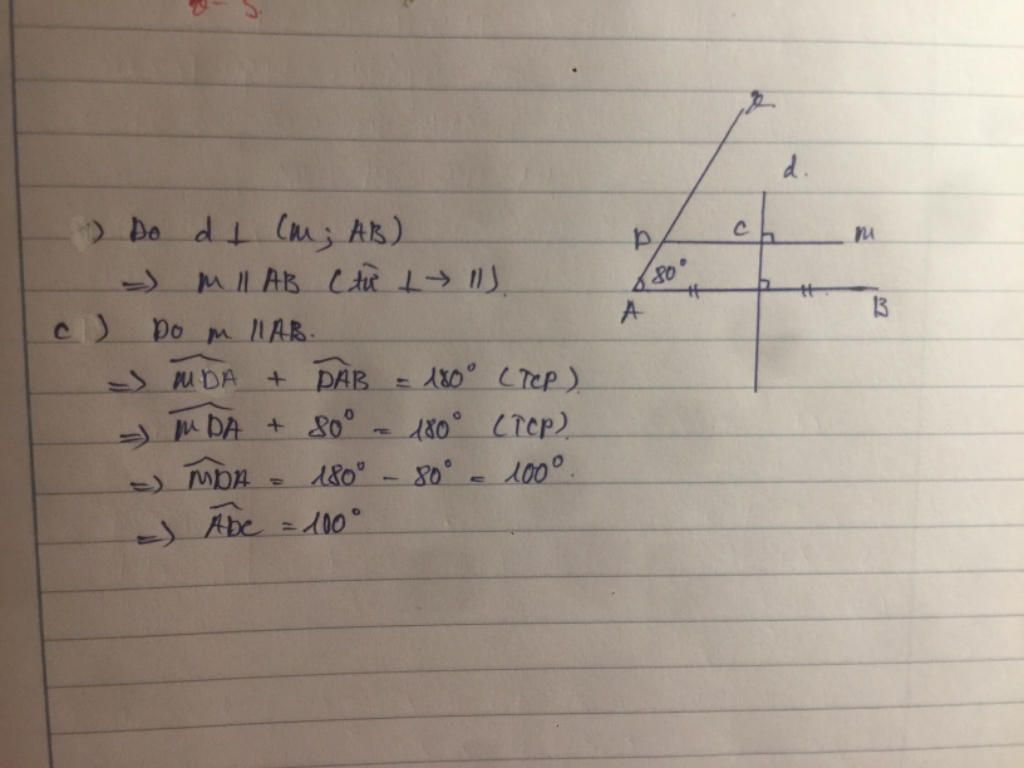 ) Do d ⊥ (m; AB)
=> m // AB (từ ⊥ → //).
c) Do m // AB.
=> \widehat{mDA} + \widehat{DAB} = 180° (TCP).
=> \widehat{mDA} + 80° = 180° (TCP).
=> \widehat{mDA} = 180° - 80° = 100°.
=> \widehat{ADC} = 100°
d.
D C m
80°
A B